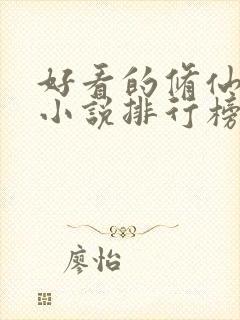 好看的脩仙
小說排行榜
廖怡